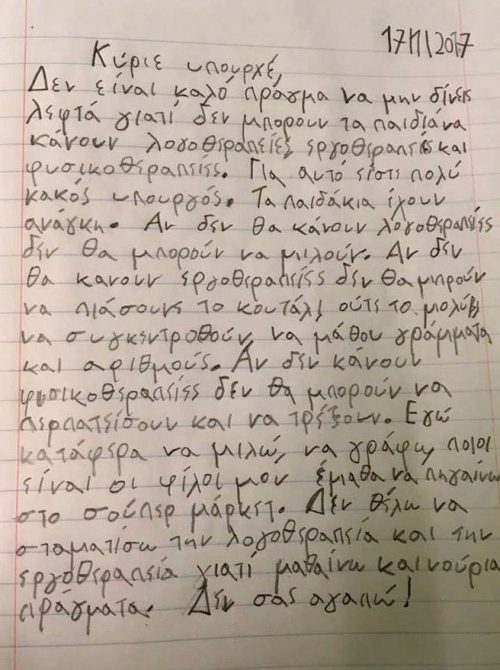 17/1/2017
Κύριε υπουργέ,
Δεν είναι καλό πράγμα να μην δίνεις
λεφτά γιατί δεν μπορουν τα παιδιά να
κάνουν λογοθεραπείες, εργοθεραπείες και
φυσικοθεραπείες. Για αυτό είστι πολύ
κακός υπουργός. Τα παιδάκια έχουν
ανάγκη. Αν δεν θα κάνουν λογοθεραπείες
δεν θα μπορούν να μιλούν. Αν δεν
θα κανουν εργοθεραπείες δεν θα μπρούν
να πιάσουνε το κουτάλι ούτε το μολύβι,
να συγκεντροθούν, να μάθου γράμματα
και αριθμούς. Αν δεν κάνουν
φυσικοθεραπείες δεν θα μπορούν να
περπατείσουν και να τρέξουν. Εγώ
κατάφερα να μιλώ, να γράφω, ποιοι
είναι οι φίλοι μου έμαθα να πηγαίνω
στο σούπερ μάρκετ. Δεν θέλω να
σταματίσω την λογοθεραπεία και την
εργοθεραπεία γιατι μαθαίνω καινούρια
πράγματα. Δεν σας αγαπώ!